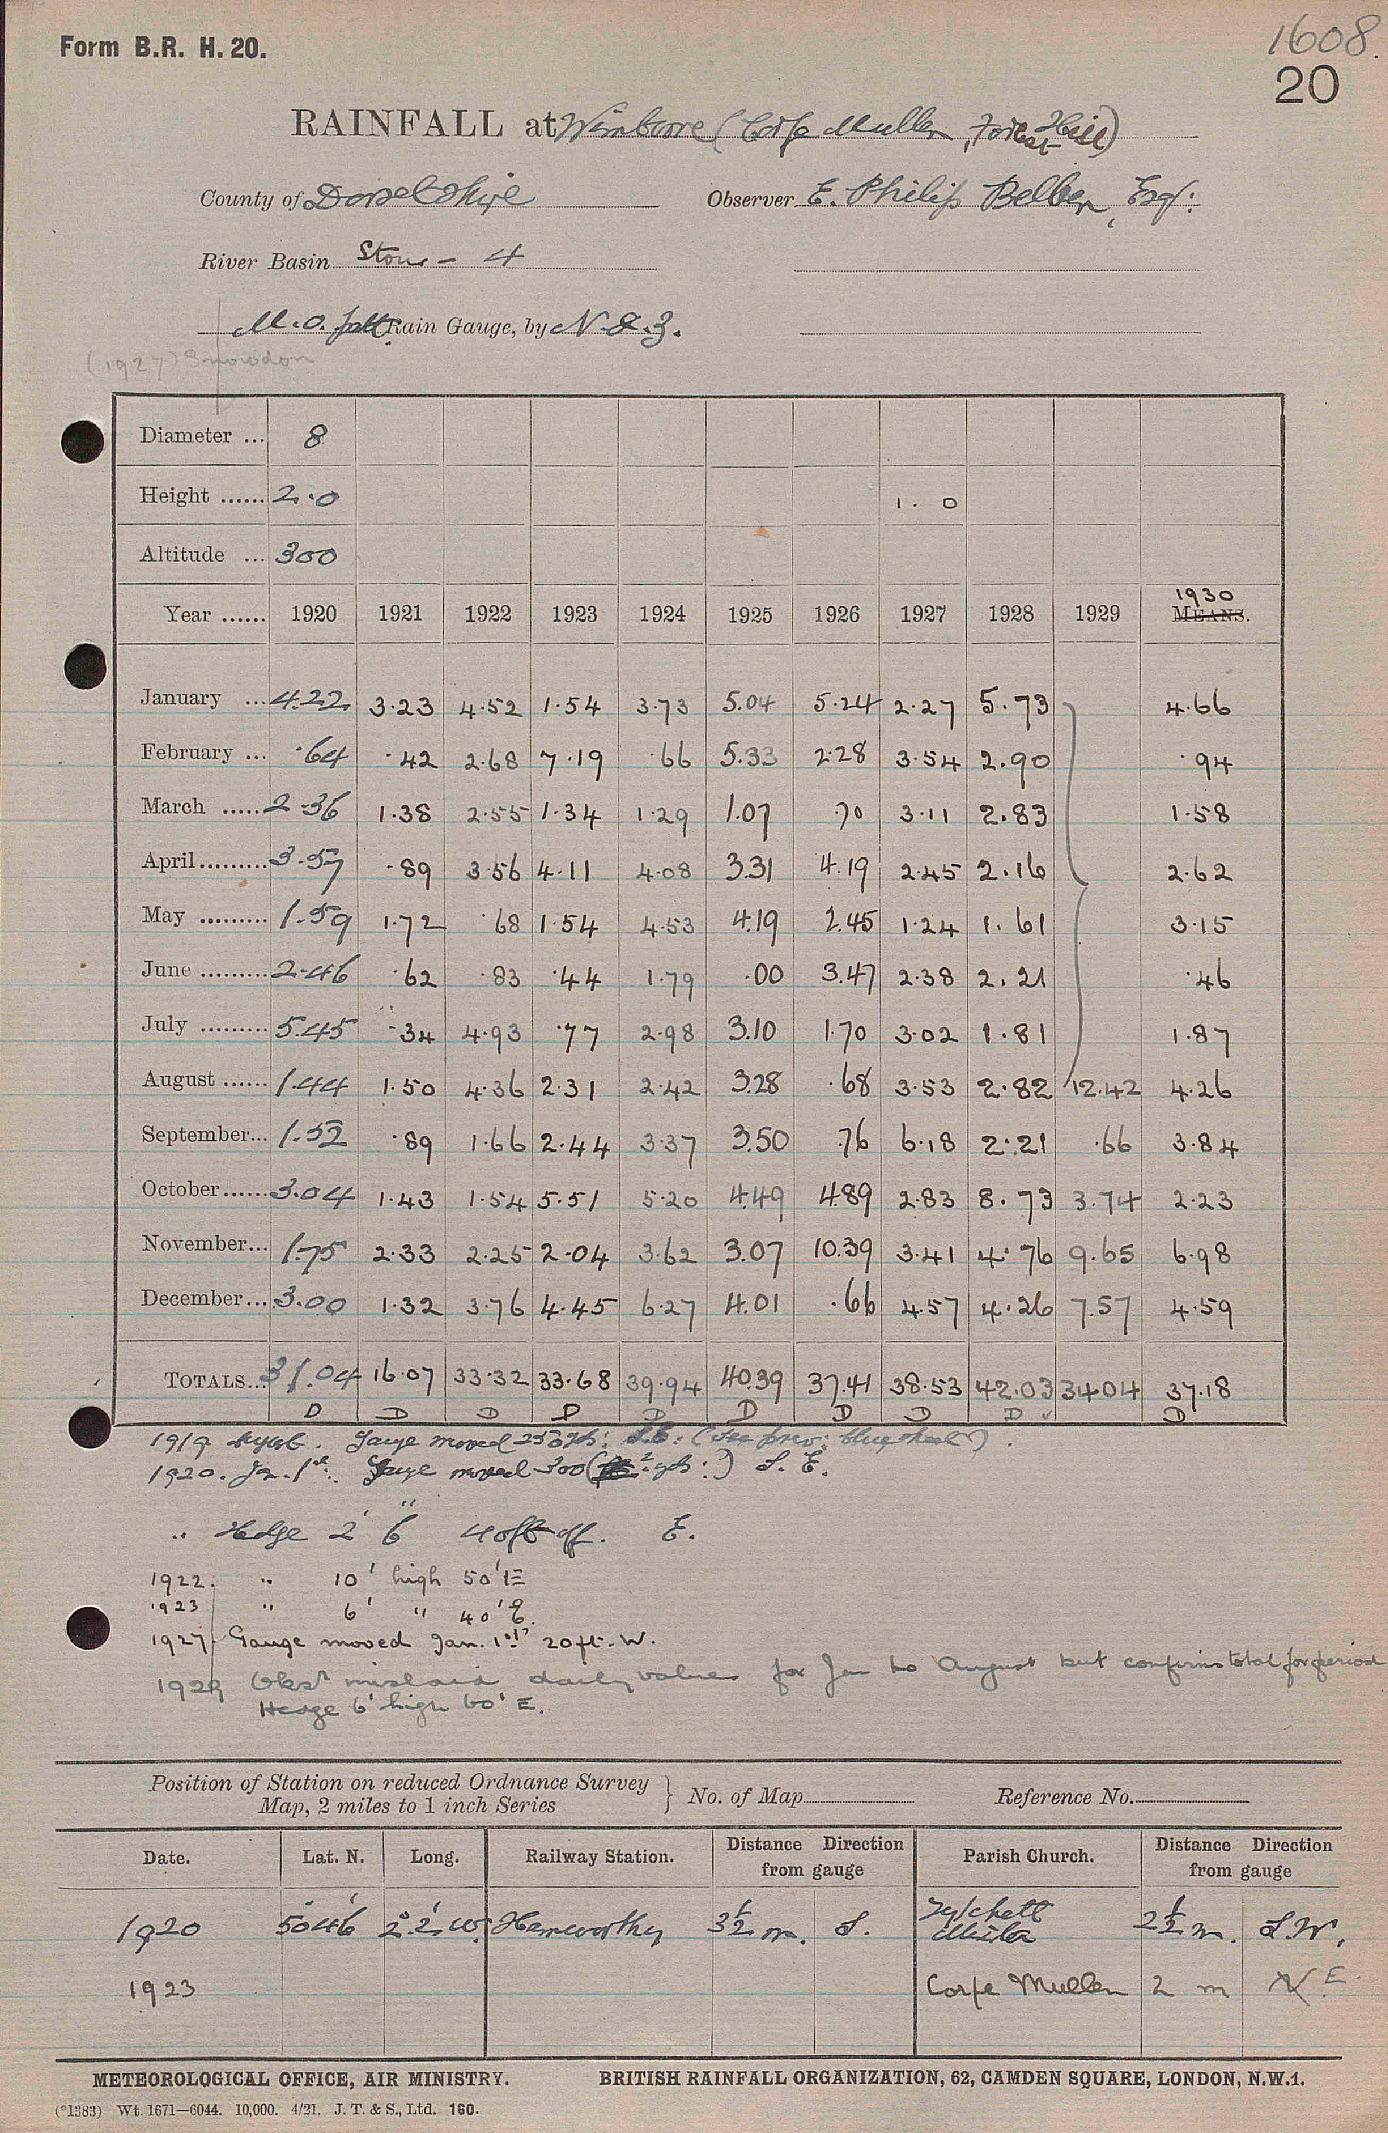 Form B.R. H. 20.
1608.
20
RAINFALL at Wimborne (Corfe Mullen, Forest Hill)
County of Dorsetshire Observer E. Philip Belben, Esq:
River Basin Stour - 4
M.O. patt. Rain Gauge, by N & Z.
(1927) Snowdon
Diameter ... 8
Height ...... 2.0 1.0
Altitude ... 300
Year ...... 1920 1921 1922 1923 1924 1925 1926 1927 1928 1929 1930 MEANS.
January ... 4.22 3.23 4.52 1.54 3.73 5.04 5.24 2.27 5.73 4.66
February ... .64 .42 2.68 7.19 .66 5.33 2.28 3.54 2.90 .94
March ...... 2.36 1.38 2.55 1.34 1.29 1.07 .70 3.11 2.83 1.58
April ......... 3.57 .89 3.56 4.11 4.08 3.31 4.19 2.45 2.16 2.62
May ......... 1.59 1.72 .68 1.54 4.53 4.19 2.45 1.24 1.61 3.15
June ......... 2.46 .62 .83 .44 1.79 .00 3.47 2.38 2.21 .46
July ......... 5.45 .34 4.93 .77 2.98 3.10 1.70 3.02 1.81 1.87
August ...... 1.44 1.50 4.36 2.31 2.42 3.28 .68 3.53 2.82 12.42 4.26
September... 1.52 .89 1.66 2.44 3.37 3.50 .76 6.18 2.21 .66 3.84
October...... 3.04 1.43 1.54 5.51 5.20 4.49 4.89 2.83 8.73 3.74 2.23
November... 1.75 2.33 2.25 2.04 3.62 3.07 10.39 3.41 4.76 9.65 6.98
December... 3.00 1.32 3.76 4.45 6.27 4.01 .66 4.57 4.26 7.57 4.59
TOTALS... 31.04 16.07 33.32 33.68 39.94 40.39 37.41 38.53 42.03 34.04 37.18
D D D D D D D D D D
1919 Gauge moved 250 yds: S.E: (see prev: blue sheet).
1920. Jan. 1st. Gauge moved 300 ( yds:) S.E.
" Hedge 2' 6" 40ft off. E.
1922. " 10' high 50' E
1923 " 6' " 40' E.
1927 Gauge moved Jan. 1st 20ft. W.
1929 Obsr mislaid daily values for Jan to August but confirms total for period
Hedge 6' high 60' E.
Position of Station on reduced Ordnance Survey Map, 2 miles to 1 inch Series } No. of Map Reference No.
Date. Lat. N. Long. Railway Station. Distance Direction from gauge Parish Church. Distance Direction from gauge
1920 50° 46' 2° 2' W. Hamworthy 3½ m. S. Lytchett Minster 2½ m. S.W.
1923 Corfe Mullen 2 m N E.
METEOROLOGICAL OFFICE, AIR MINISTRY. BRITISH RAINFALL ORGANIZATION, 62, CAMDEN SQUARE, LONDON, N.W.1.
(*1383) Wt. 1671—6044. 10,000. 4/21. J. T. & S., Ltd. 160.